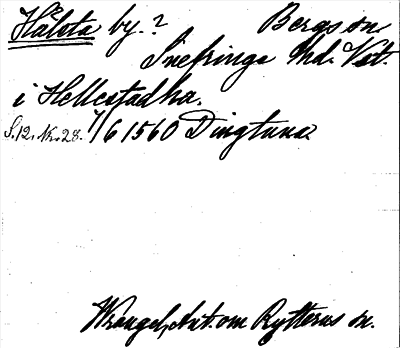 Hålsta by. ? Bergs sn.
Snefringe hd. Vstm.
i Hellestadha.
S. 12. Nr. 28. 7/6 1560 Dingtuna
Wrangel, Ant. om Rytterns sn.